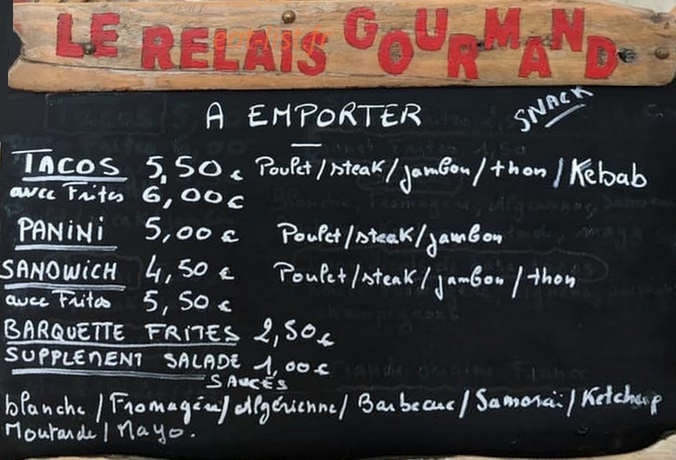 LE RELAIS GOURMAND
A EMPORTER SNACK
TACOS 5,50€ Poulet/steak/jambon/thon/Kebab
avec Frites 6,00€
PANINI 5,00€ Poulet/steak/jambon
SANDWICH 4,50€ Poulet/steak/jambon/thon
avec Frites 5,50€
BARQUETTE FRITES 2,50€
SUPPLEMENT SALADE 1,00€
SAUCES
blanche/Fromagère/Algérienne/Barbecue/Samoraï/Ketchup
Moutarde/Mayo.